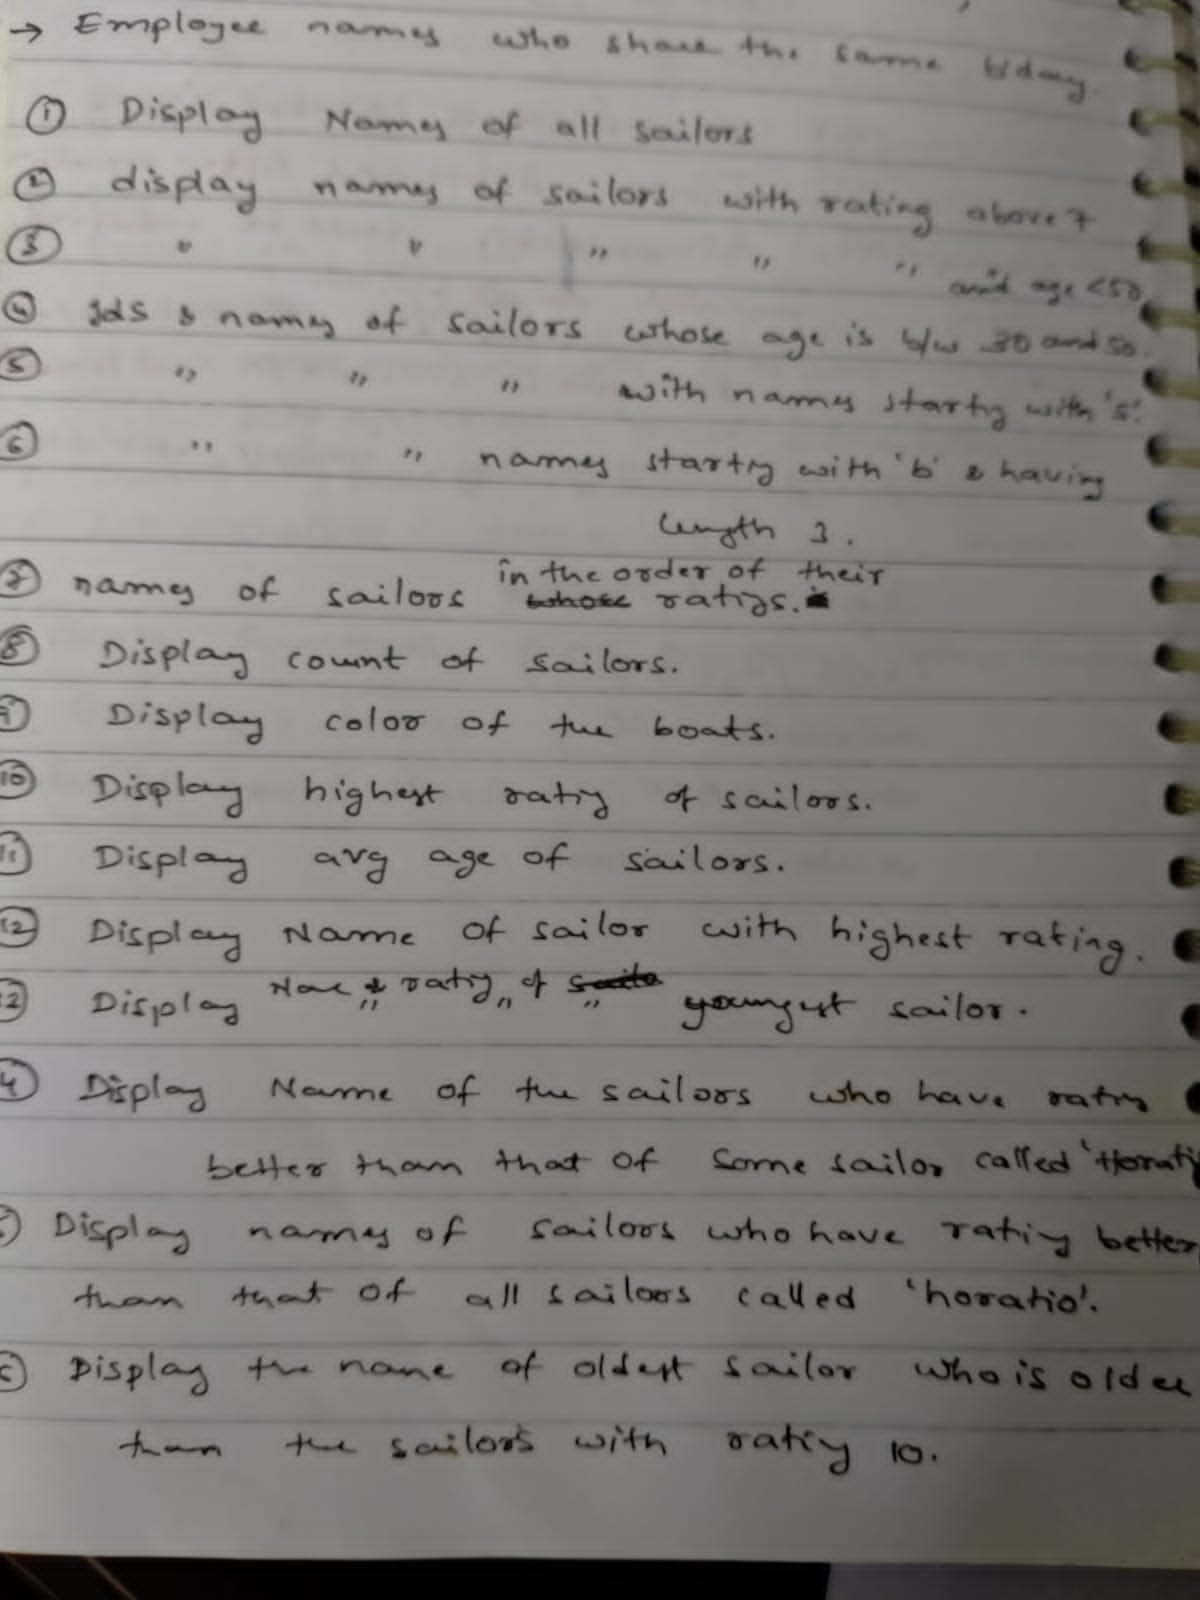 → Employee names who share the same b'day.
① Display Names of all sailors
② display names of sailors with rating above 7
③ " " " " " and age <50
④ Ids & names of sailors whose age is b/w 30 and 50.
⑤ " " " with names startig with 's'.
⑥ " " names startig with 'b' & having
length 3.
⑦ names of sailors in the order of their
whose ratigs.
⑧ Display count of sailors.
⑨ Display color of the boats.
⑩ Display highest ratig of sailors.
⑪ Display avg age of sailors.
⑫ Display Name of sailor with highest rating.
Display Name & ratig of youngest sailor.
4 Display Name of the sailors who have ratig
better than that of some sailor called 'Horati
Display names of sailors who have ratig better
than that of all sailors called 'horatio'.
Display the name of oldest sailor who is older
than the sailors with ratig 10.